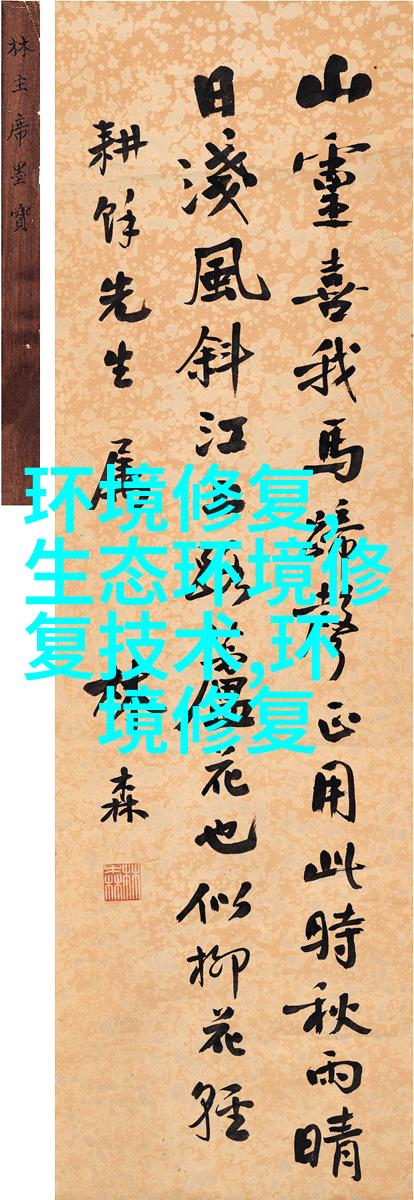 山靈喜我馬蹄聲正用此時秋雨晴
日淺風斜江上路蘆花也似柳花輕
耕餘先生 屬 林森
林森
林主席墨寶
环境修复,
生态环境修
复技术,环
境修复